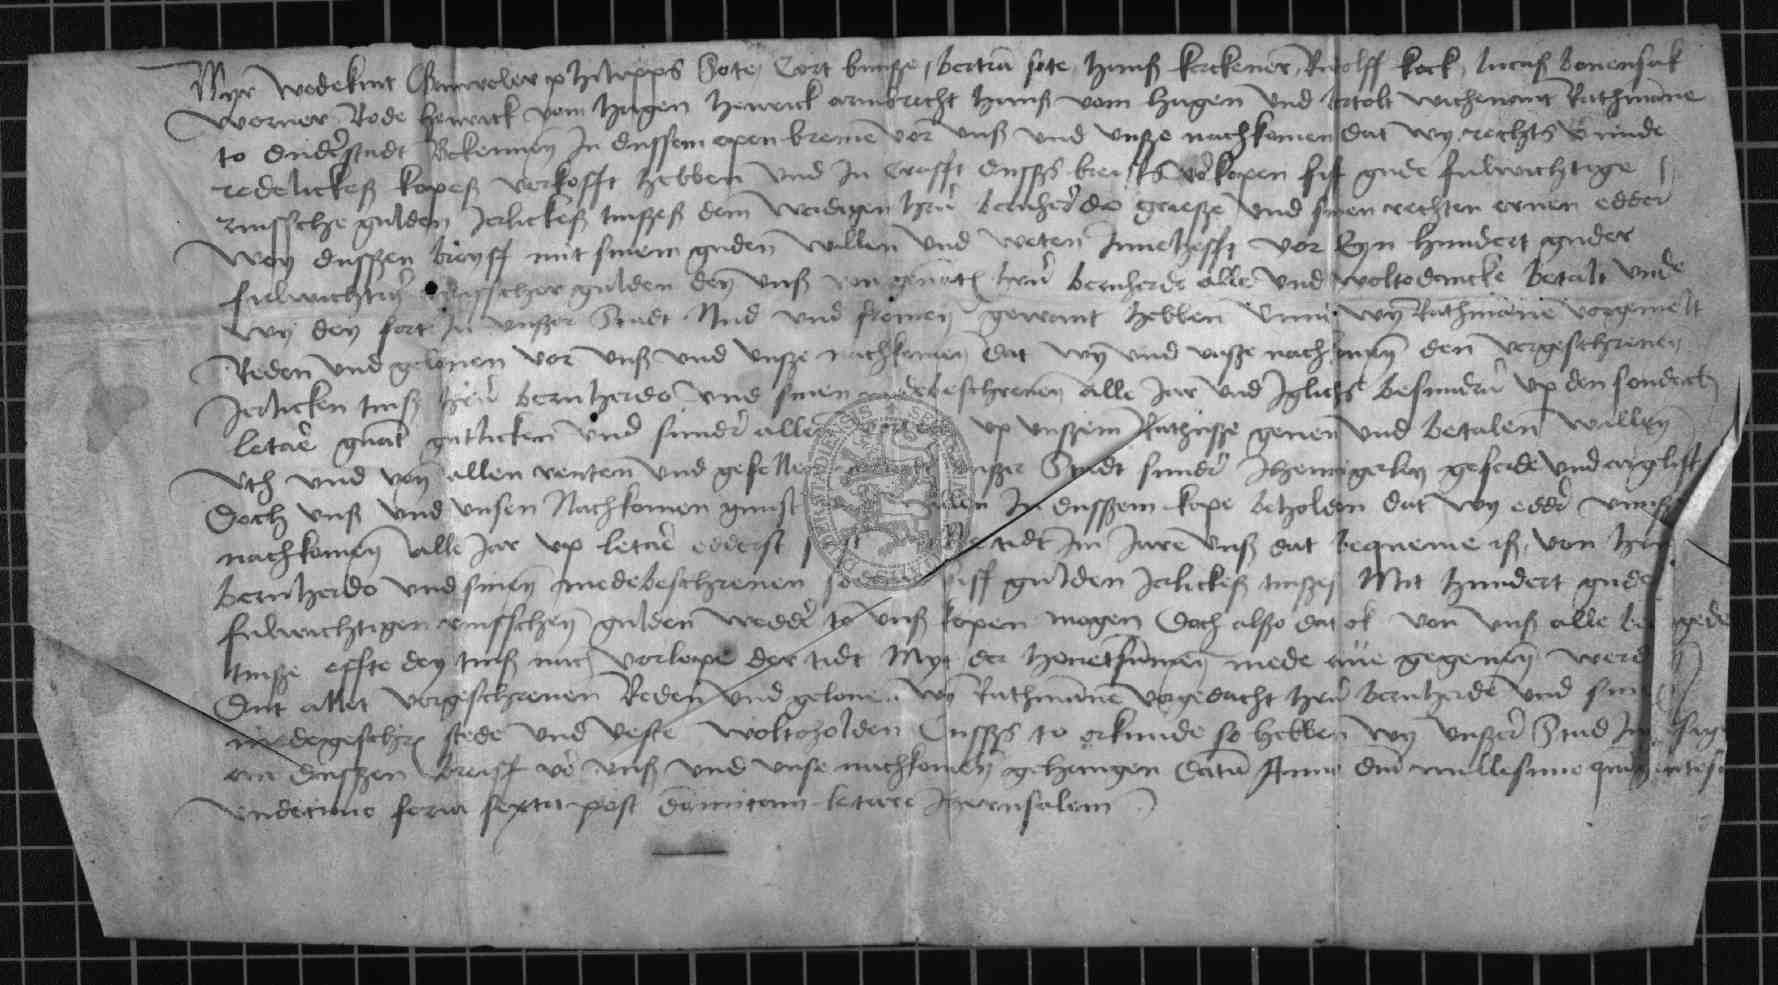 Wyr Wedekint Phlipps Sote, Cort bunsze, bertra sote, Hanß kerckener, Rudolff kock, lucaß bonensak
Werner Rode Henrick vom Hagen Henrick armbrecht Hanß vom Hagen und bertolt wichenant Rathmanne
to duderstadt Bekennen In dussem open breiue vor unß und unsze nachkomen dat wy rechts unde
redelickeß kopeß verkofft hebben und In Crafft dusses breiffs vorkopen fiff gude fulwichtige
rinssche gulden Jerlickeß tinszeß dem werdigen hern bernherdo und sinen rechten eruen edder
wey dusszen breyff mit sinem guden willen und weten Innehefft vor Eyn hundert guder
fulwichtiger rinsscher gulden dey unß von hern bernherde alle und wol to dancke betalt unde
wy dey fort in unszer Stadt Nud und fromen gewant hebben wy Rathmanne vorgemelt
Reden und gelouen vor unß und unsze nachkomen dat wy und unsze nachkomen den vorgeschreuen
Jerlicken tinß hern bernherdo und sinen medebeschreuen alle Jar und Igliches besundern up den sondach
letare gutlicken und sunder up unszem Rathusze geuen und betalen willen
Uth und von allen renten und gefellen unszer Stadt sunder geferde und argelist
Doch unß und unsen Nachkomen In dusszem kope beholden dat wy edder unse
nachkomen alle Jar up letare tidt im Jare unß dat bequeme iß, von hern
bernherdo und sinen medebeschreuen fiff gulden Jerlickeß tinszeß Mit hundert guden
fulwichtigen rinsschen gulden wedder to unß kopen mogen Doch alszo dat ok von unß alle bedagede
tinsze effte dey tinß nach vorlope der tidt Myt der houetsummen mede gegeuen werden
Dut allet vorgeschreuen Reden und gelouen wy Rathmanne vorgedacht hern bernherde und sinen
medegeschr stede und veste wol to holden Dusses to orkunde so hebben wy unszer Stad Ingesigel
an dusszen breiff vor unß und unse nachkomen gehangen Datu Anno dni millesimo quingentesimo
undecimo feria sexta post dominicam letare Jherusalem